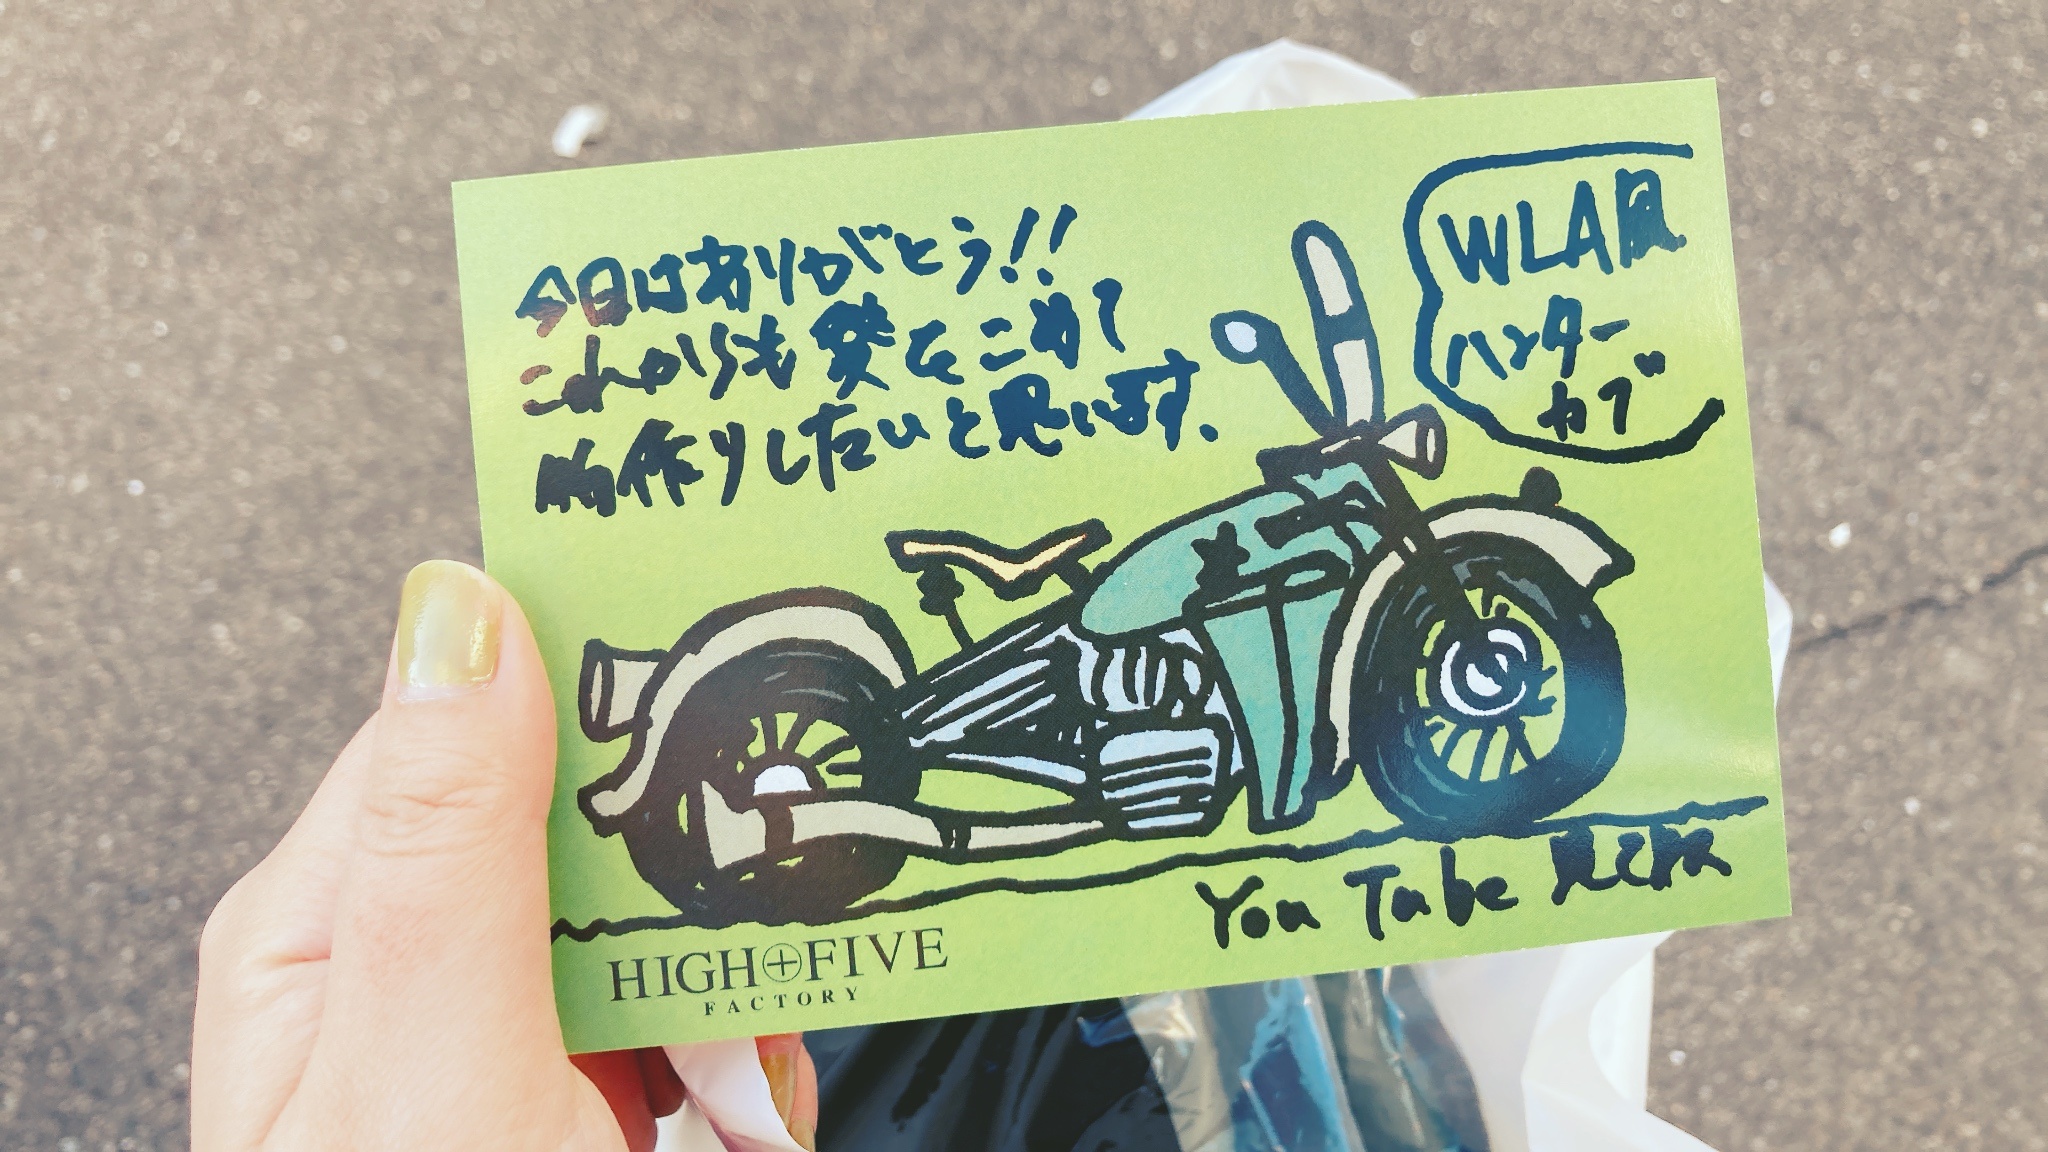 今日はありがとう!!
これからも愛をこめて
物作りしたいと思います.
WLA風
ハンター
カブ
You Tube 見てね
HIGH FIVE
FACTORY